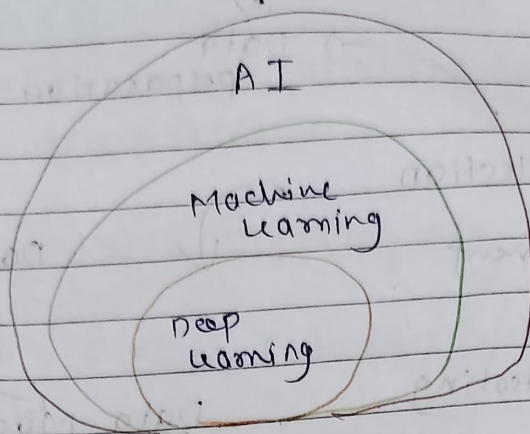 AI
Machine
Learning
Deep
Learning